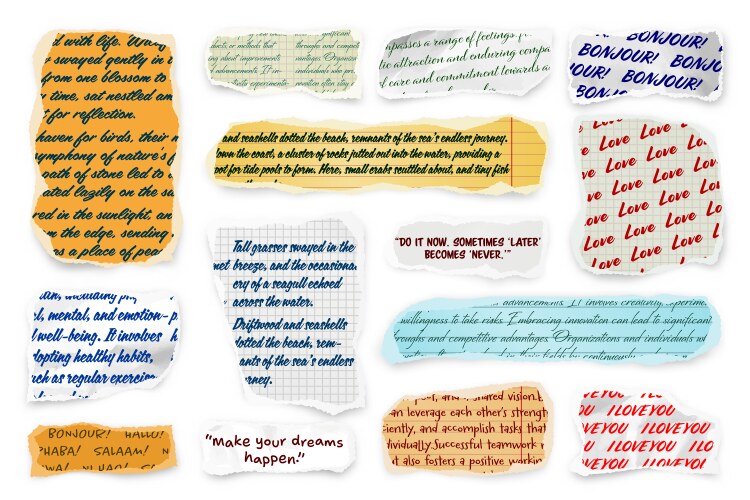 with life.
swayed gently in
from one blossom to
time, sat nestled am
for reflection.
haven for birds, their
symphony of nature's
path of stone led to
ated lazily on the su
red in the sunlight, an
the edge, sending
as a place of pea
or methods that
about improvements
advancements. It in
experimente
through and competi
vantages. Organiza
apasses a range of feelings, f
tic attraction and enduring compa
f care and commitment towards a
BONJOUR!
BONJOUR! BONJOU
OUR! BONJOUR!
BONJOUR! BO
and seashells dotted the beach, remnants of the sea's endless journey.
Down the coast, a cluster of rocks jutted out into the water, providing a
pot for tide pools to form. Here, small crabs scuttled about, and tiny fish
Love Love
Love Love Love
Love Love Love
Love Love Love
Love Love Love
Love Love Love
Love Love
Tall grasses swayed in the
met breeze, and the occasiona
cry of a seagull echoed
across the water.
Driftwood and seashells
dotted the beach, rem-
ants of the sea's endless
rney.
"DO IT NOW. SOMETIMES 'LATER'
BECOMES 'NEVER.'"
an, including
l, mental, and emotion- p
l well-being. It involves h
dopting healthy habits,
uch as regular exercise
advancements. It involves creativity, experime
willingness to take risks. Embracing innovation can lead to significant
roughs and competitive advantages. Organizations and individuals wh
in their fields by continuously
and shared vision.
an leverage each other's strength
iently, and accomplish tasks that
dividually. Successful teamwork r
t also fosters a positive workin
VEYOU I LOVE
OU I LOVEYOU
I LOVEYOU I LO
VEYOU I LOVEYO
OU I LOVEYOU
BONJOUR! HALLO!
PHABA! SALAAM! N
WA! NI HAO!
"Make your dreams
happen."